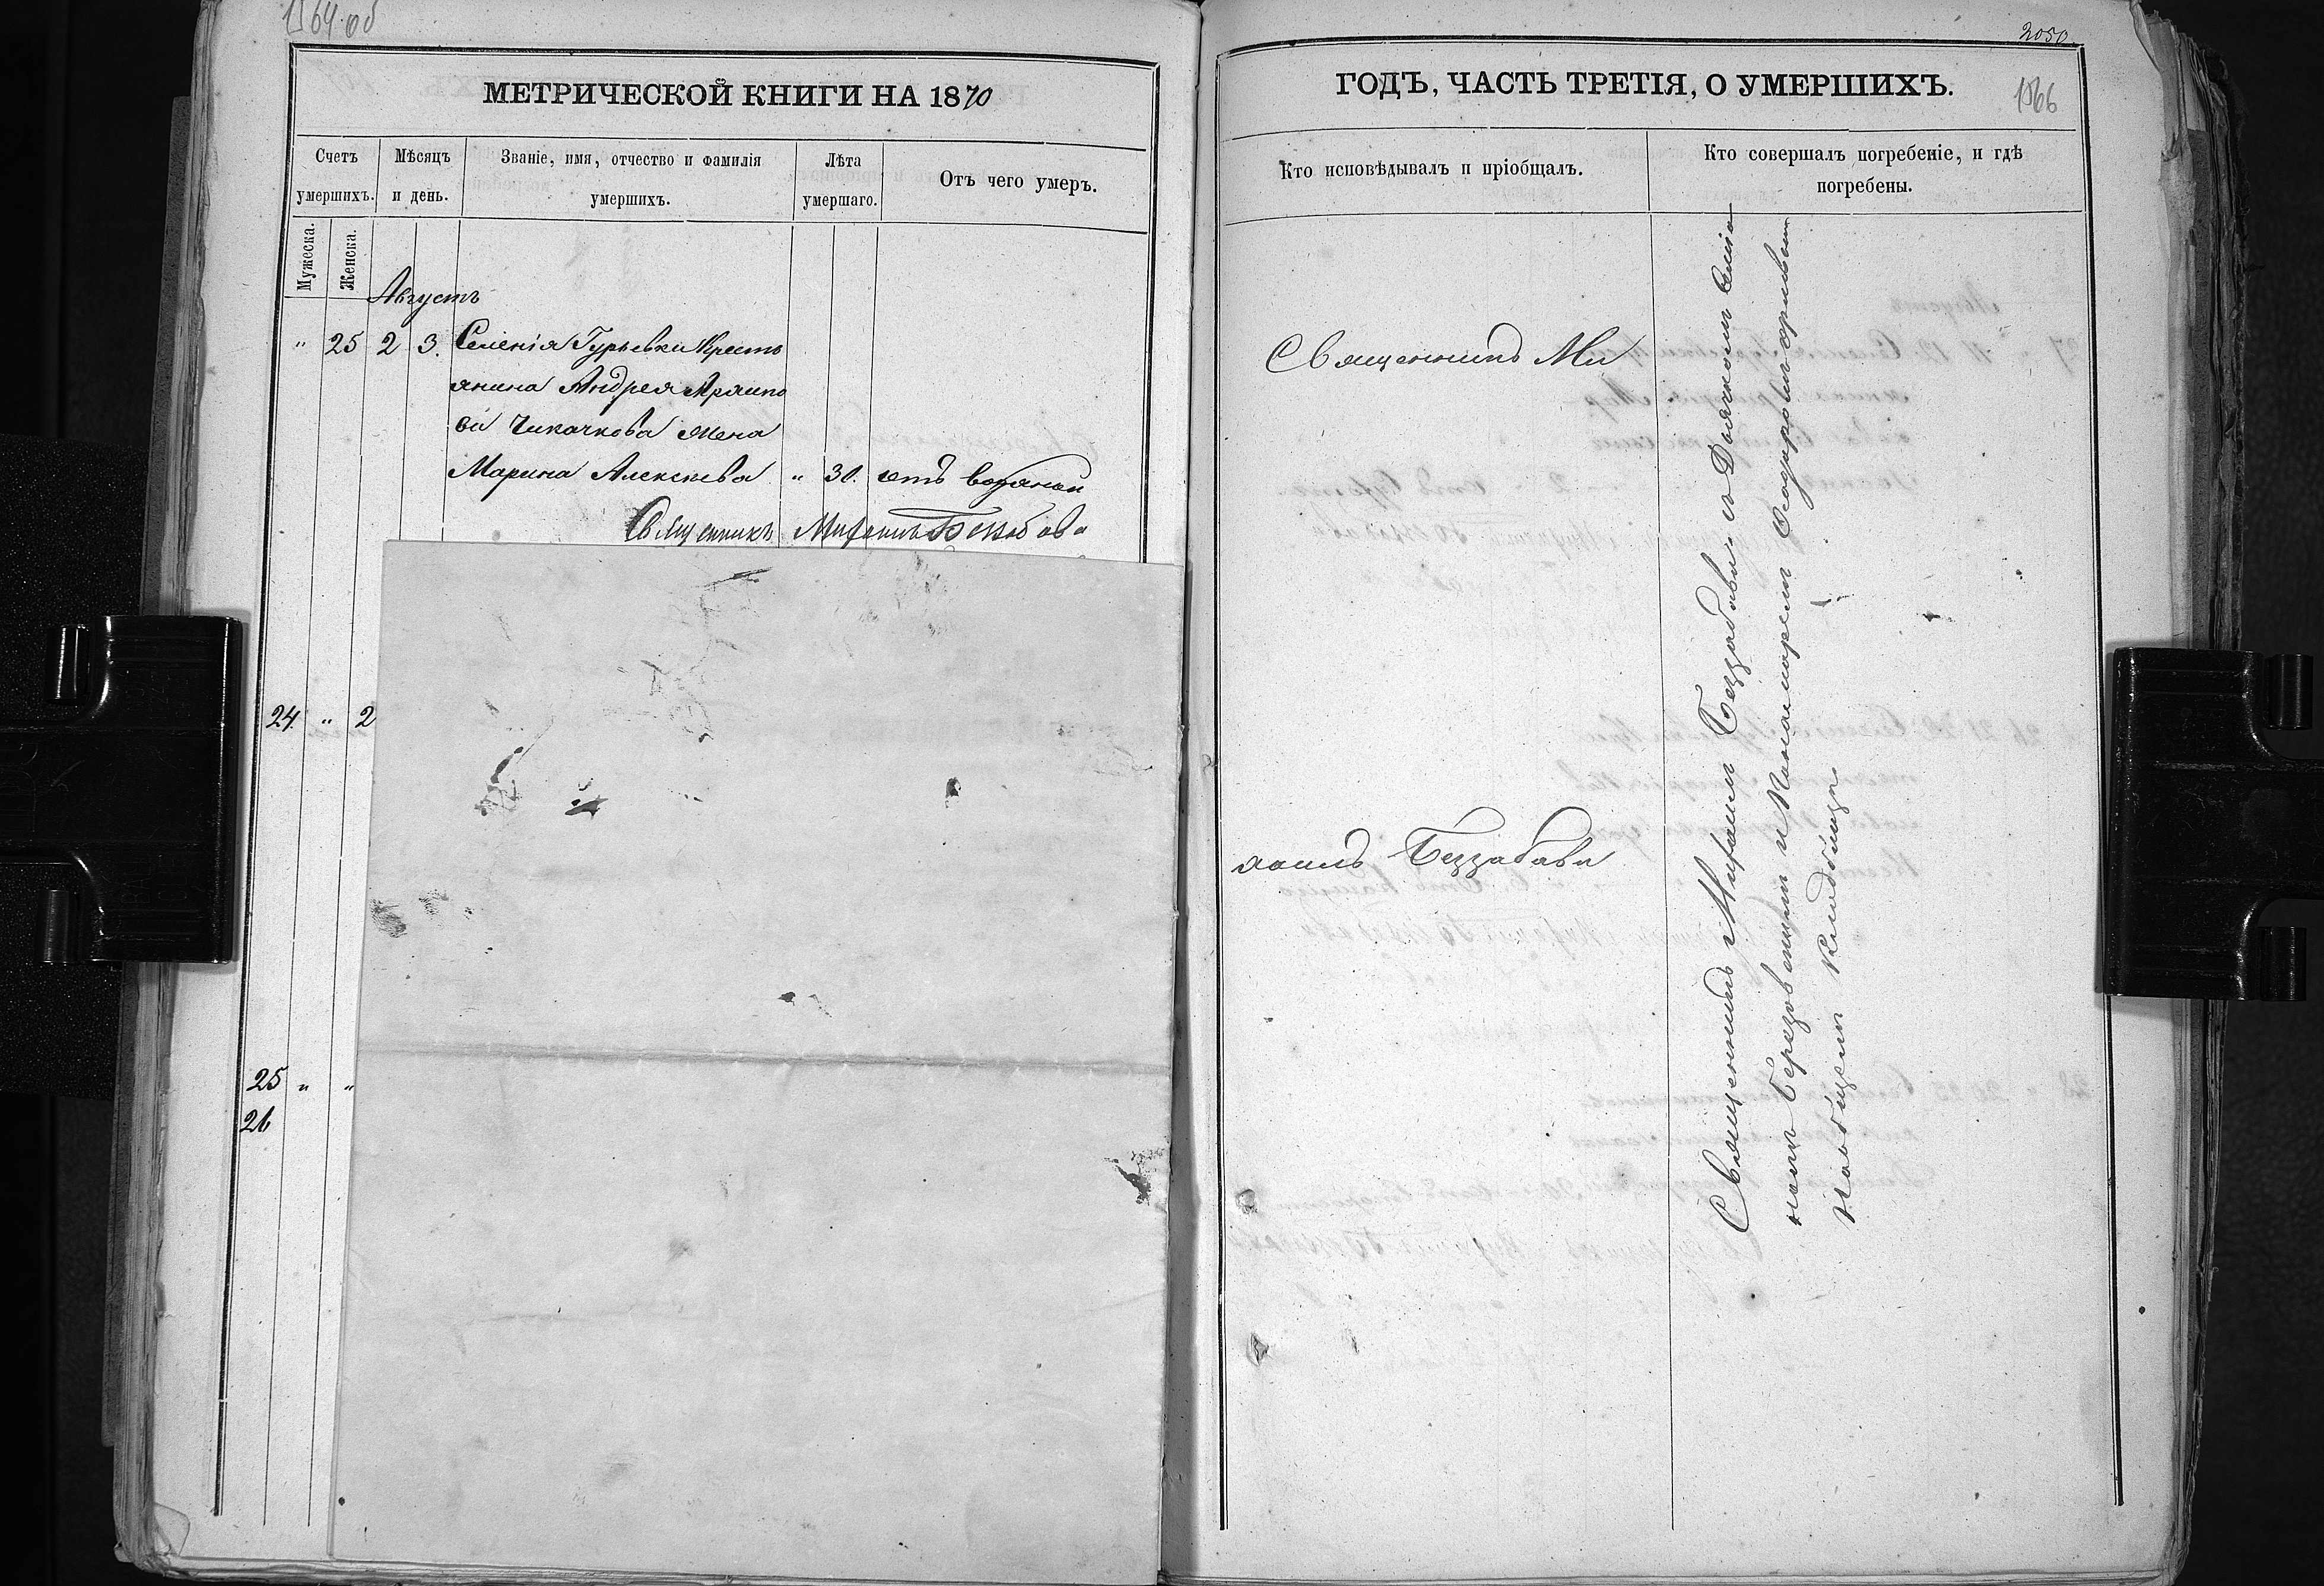 1564 об
МЕТРИЧЕСКОЙ КНИГИ НА 1870
Счетъ умершихъ.
Мѣсяцъ и день.
Званіе, имя, отчество и фамилія умершихъ.
Лѣта умершаго.
Отъ чего умеръ.
Мужеска.
Женска.
Августъ
" 25 2 3. Селенія Гурьевки Кресть
янина Андрея
Чикачкова жена
Марина Алексѣева " 30. отъ водяной
Священникъ Митрофанъ Беззабава
24. " 2
25 " "
26
2050
ГОДЪ, ЧАСТЬ ТРЕТІЯ, О УМЕРШИХЪ.
1566
Кто исповѣдывалъ и пріобщалъ.
Кто совершалъ погребеніе, и гдѣ
погребены.
Священникъ Ми
Беззабава
Священникъ Беззабава съ Дьякономъ
и Пономаремъ
кладбищѣ